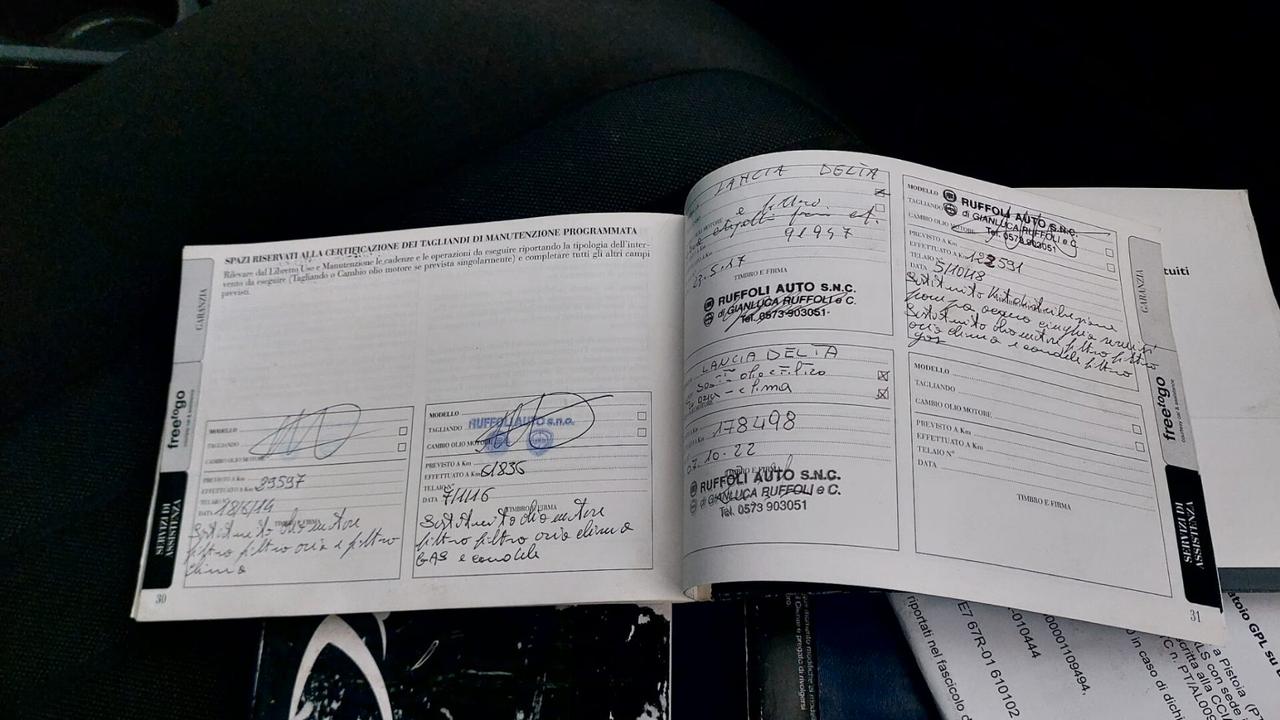 SPAZI RISERVATI ALLA CERTIFICAZIONE DEI TAGLIANDI DI MANUTENZIONE PROGRAMMATA
Rilevare dal Libretto Uso e Manutenzione le cadenze e le operazioni da eseguire riportando la tipologia dell'inter-
vento da eseguire (Tagliando o Cambio olio motore se prevista singolarmente) e completare tutti gli altri campi
previsti.
GARANZIA
freetogo
SERVIZI DI
ASSISTENZA
MODELLO
TAGLIANDO
CAMBIO OLIO MOTORE
PREVISTO A Km
EFFETTUATO A Km 29597
TELAIO N°
DATA 18/6/14
TIMBRO E FIRMA
Sostituito olio motore
filtro filtro aria e filtro
clima
30
MODELLO
TAGLIANDO
RUFFOLI AUTO s.n.c.
CAMBIO OLIO MOTORE
PREVISTO A Km
EFFETTUATO A Km 61836
TELAIO N°
DATA 7/1/16
TIMBRO E FIRMA
Sostituito olio motore
filtro filtro aria clima
GAS e candele
LANCIA DELTA
e filtro
91947
23.5.17
TIMBRO E FIRMA
RUFFOLI AUTO S.N.C.
di GIANLUCA RUFFOLI e C.
Tel. 0573 903051
LANCIA DELTA
olio e filtro
aria - clima
178498
07.10.22
TIMBRO E FIRMA
RUFFOLI AUTO S.N.C.
di GIANLUCA RUFFOLI e C.
Tel. 0573 903051
MODELLO
RUFFOLI AUTO S.N.C.
TAGLIANDO
di GIANLUCA RUFFOLI e C.
CAMBIO OLIO MOTORE
Tel. 0573 903051
PREVISTO A Km
EFFETTUATO A Km 122591
TELAIO N°
DATA 5/10/18
Sostituito kit distribuzione
pompa acqua cinghia servizi
Sostituito olio motore filtro filtro
aria clima e candele filtro
gas
MODELLO
TAGLIANDO
CAMBIO OLIO MOTORE
PREVISTO A Km
EFFETTUATO A Km
TELAIO N°
DATA
TIMBRO E FIRMA
GARANZIA
freetogo
SERVIZI DI
ASSISTENZA
31
tuiti
riportati nel fascicolo d
ET 67R-01 610102
-010444
0000109494.
o in caso di dich
C. n. PT/AL00
critta alla CCI
(LS con sede
a Pistoia (P
atoio GPL su